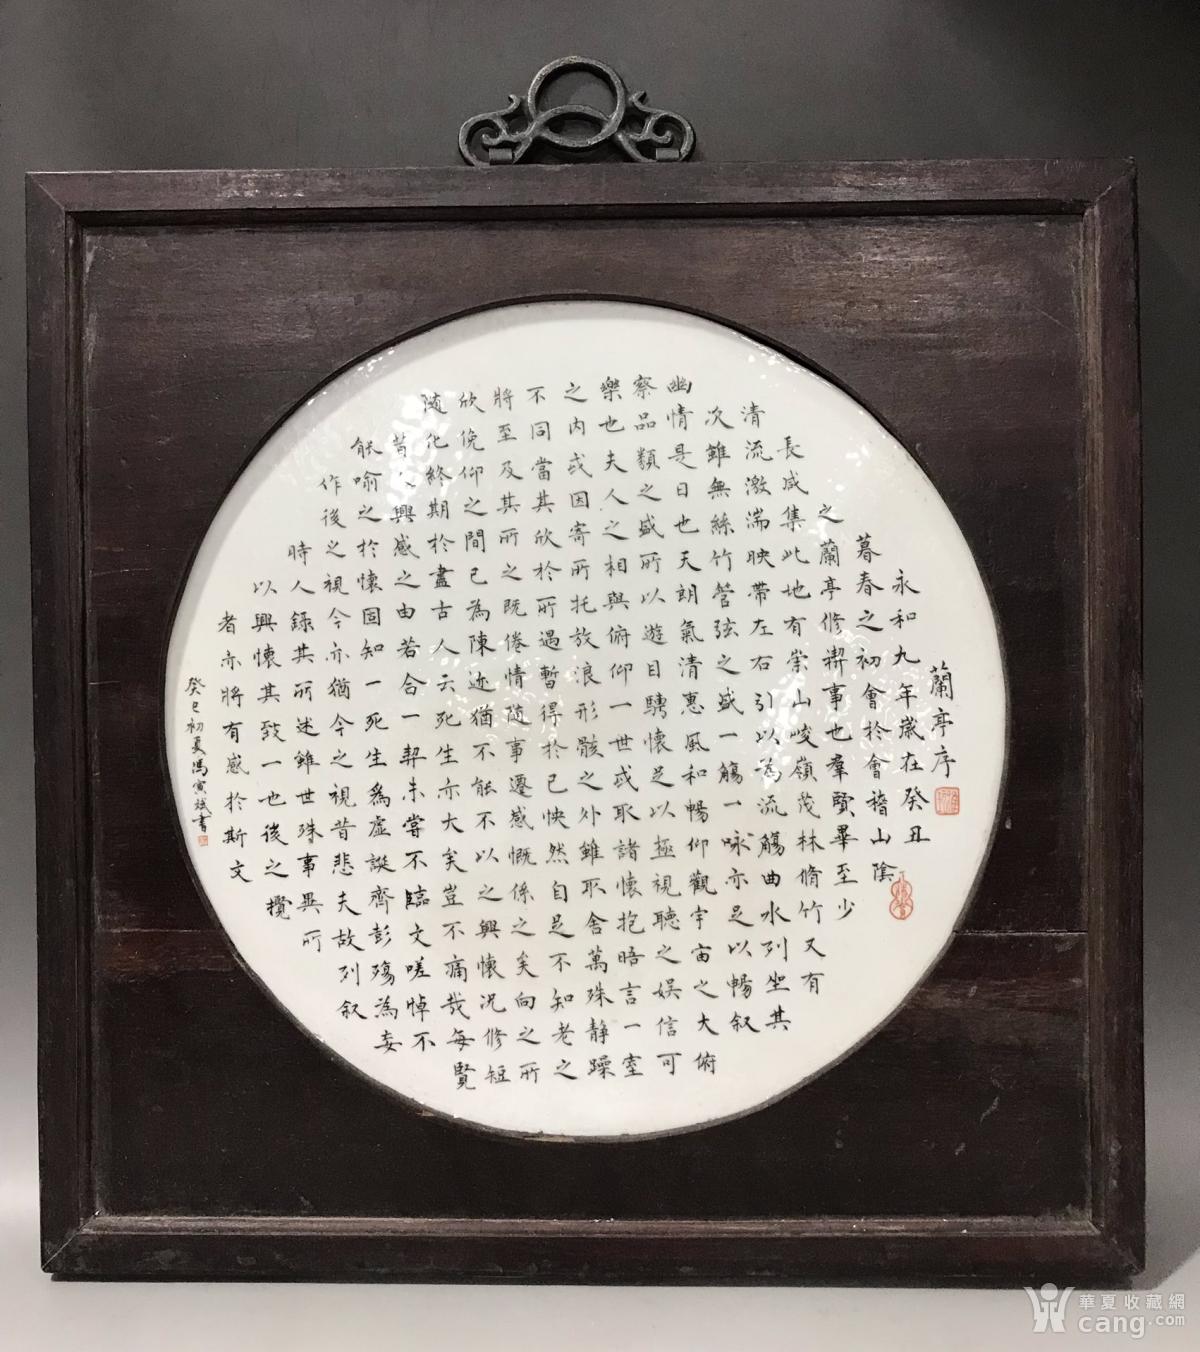 蘭亭序
永和九年歲在癸丑
暮春之初會於會稽山陰
之蘭亭修禊事也羣賢畢至少
長咸集此地有崇山峻嶺茂林脩竹又有
清流激湍映帶左右引以為流觴曲水列坐其
次雖無絲竹管弦之盛一觴一咏亦足以暢叙
幽情是日也天朗氣清惠風和暢仰觀宇宙之大俯
察品類之盛所以遊目騁懷足以極視聽之娛信可
樂也夫人之相與俯仰一世或取諸懷抱晤言一室
之內或因寄所托放浪形骸之外雖取舍萬殊静躁
不同當其欣於所遇暫得於己怏然自足不知老之
將至及其所之既倦情随事遷感慨係之矣向之所
欣俛仰之間已為陳迹猶不能不以之興懷況修短
随化終期於盡古人云死生亦大矣豈不痛哉每覽
昔人興感之由若合一契未嘗不臨文嗟悼不
能喻之於懷固知一死生為虛誕齊彭殤為妄
作後之視今亦猶今之視昔悲夫故列叙
時人錄其所述雖世殊事異所
以興懷其致一也後之攬
者亦將有感於斯文
癸巳初夏馮寅斌書
華夏收藏網
cang.com